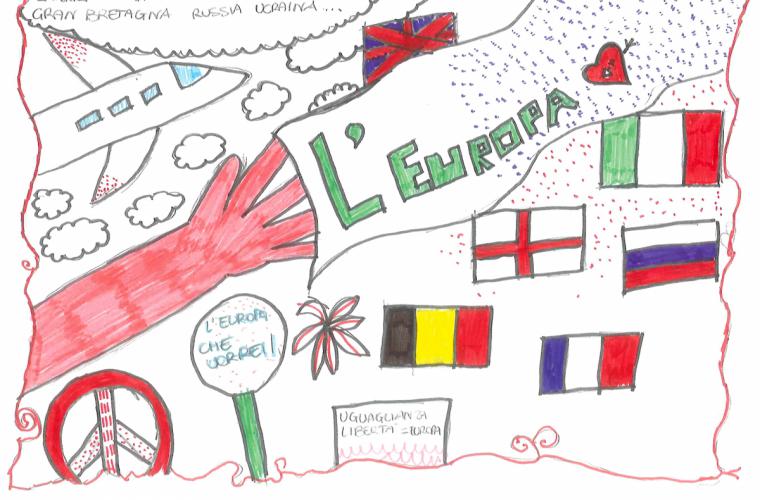 GRAN BRETAGNA RUSSIA UCRAINA...
L'EUROPA
L'EUROPA
CHE
VORREI!
UGUAGLIANZA
LIBERTÀ = EUROPA